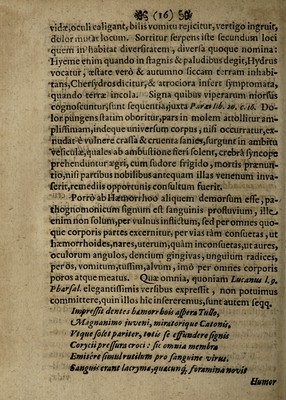 (16)
vidæ, oculi caligant, bilis vomitu rejicitur, vertigo ingruit,
dolor mutat locum. Sortitur serpens iste secundum loci
quem inhabitat diversitatem, diversa quoque nomina:
Hyeme enim quando in stagnis & paludibus degit, Hydrus
vocatur, æstate verò & autumno siccam terram inhabi-
tans, Chersydros dicitur, & atrociora infert symptomata,
quando terræ incola. Signa quibus viperarum morsus
cognoscuntur, sunt sequentia, juxta Paræi lib. 20. c. 16. Do-
lor pungens statim oboritur, pars in molem attollitur am-
plissimam, indeque universum corpus, nisi occurratur, ex-
sudat è vulnere crassa & cruenta sanies, surgunt in ambitu
vesiculæ, quales ab ambustione fieri solent, crebra syncope
prehenduntur ægri, cum sudore frigido, mortis prænun-
tio, nisi partibus nobilibus antequam illas venenum inva-
serit, remediis opportunis consultum fuerit.
Porrò ab Hæmorrhoo aliquem demorsum esse, pa-
thognomonicum signum est sanguinis profluvium, ille,
enim non solum, per vulnus inflictum, sed per omnes quo-
que corporis partes excernitur, per vias tàm consuetas, ut
hæmorrhoides, nares, uterum, quàm inconsuetas, ut aures,
oculorum angulos, dentium gingivas, unguium radices,
per os, vomitum, tussim, alvum, imò per omnes corporis
poros atque meatus. Quæ omnia, quoniam Lucanus l. 9.
Pharsal. elegantissimis versibus expressit, non potuimus
committere, quin illos hîc insereremus, sunt autem seqq.
Impressit dentes hæmorrhois aspera Tullo,
Magnanimo juveni, miratorique Catonis,
Utque solet pariter, totis se effundere signis
Corycii pressura croci: sic omnia membra
Emisêre simul rutilum pro sanguine virus.
Sanguis erant lacrymæ, quæcunq; foramina novit
Humor